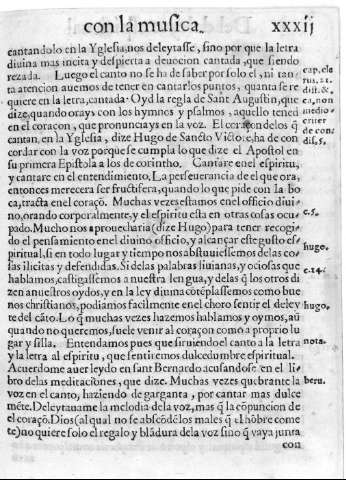 con la musica. xxxij
cantandolo en la Yglesia, nos deleytasse, sino por que la letra
diuina mas incita y despierta a deuocion cantada, que siendo
rezada. Luego el canto no se ha de saber por solo el, ni tan-
ta atencion auemos de tener en cantar los puntos, quanta se re
quiere en la letra, cantada. Oyd la regla de Sant Augustin, que
dize, quando orays con los hymnos y psalmos, aquello tened
en el coraçon, que pronunciays en la voz. El coraçon delos q̃
cantan, en la Yglesia, dize Hugo de Sancto Victore, ha de con
cordar con la voz, porque se cumpla lo que dize el Apostol en
su primera Epistola a los de corintho. Cantare en el espiritu,
y cantare en el entendimiento. La perseuerancia de el que ora,
entonces merecera ser fructifera, quando lo que pide con la bo
ca, tracta en el coraçõ. Muchas vezes estamos en el officio diui-
no, orando corporalmente, y el espiritu esta en otras cosas ocu-
pado. Mucho nos aprouecharia (dize Hugo) para tener recogi-
do el pensamiento en el diuino officio, y alcançar este gusto es-
piritual, si en todo lugar y tiempo nos abstuuiessemos delas co-
sas ilicitas y defendidas. Si delas palabras liuianas, y ociosas que
hablamos, castigassemos a nuestra lengua, y delas q̃ los otros di
zen a nuestros oydos, y en la ley diuina cõtẽplassemos como bue
nos christianos, podiamos facilmente en el choro sentir el deley
te del cãto. Lo q̃ muchas vezes hazemos hablamos y oymos, aũ
quando no queremos, suele venir al coraçon como a proprio lu
gar y silla. Entendamos pues que siruiendo el canto a la letra
y la letra al espiritu, que sentiremos dulcedumbre espiritual.
Acuerdome auer leydo en sant Bernardo acusandose en el li-
bro delas meditaciões, que dize. Muchas vezes quebrante la
voz en el canto, haziendo de garganta, por cantar mas dulce
mẽte. Deleytauame la melodia dela voz, mas q̃ la cõpuncion de
el coraçõ. Dios (al qual no se abscõdẽ los males q̃ el hõbre come
te) no quiere solo el regalo y blãdura dela voz sino q̃ vaya junta
con
cap. cle
dist. &
ca, non
medio
criter
de con
dis. 5.
c. 5.
hugo.
c. 14.
hugo.
nota.
beru.